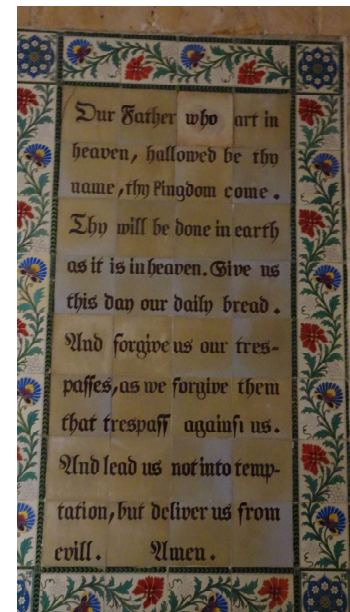 Our Father who art in
heaven, hallowed be thy
name, thy Pingdom come.
Thy will be done in earth
as it is in heaven. Give us
this day our daily bread.
And forgive us our tres-
paſſes, as we forgive them
that trespaſſ againſt us.
And lead us not into temp-
tation, but deliver us from
evill. Amen.